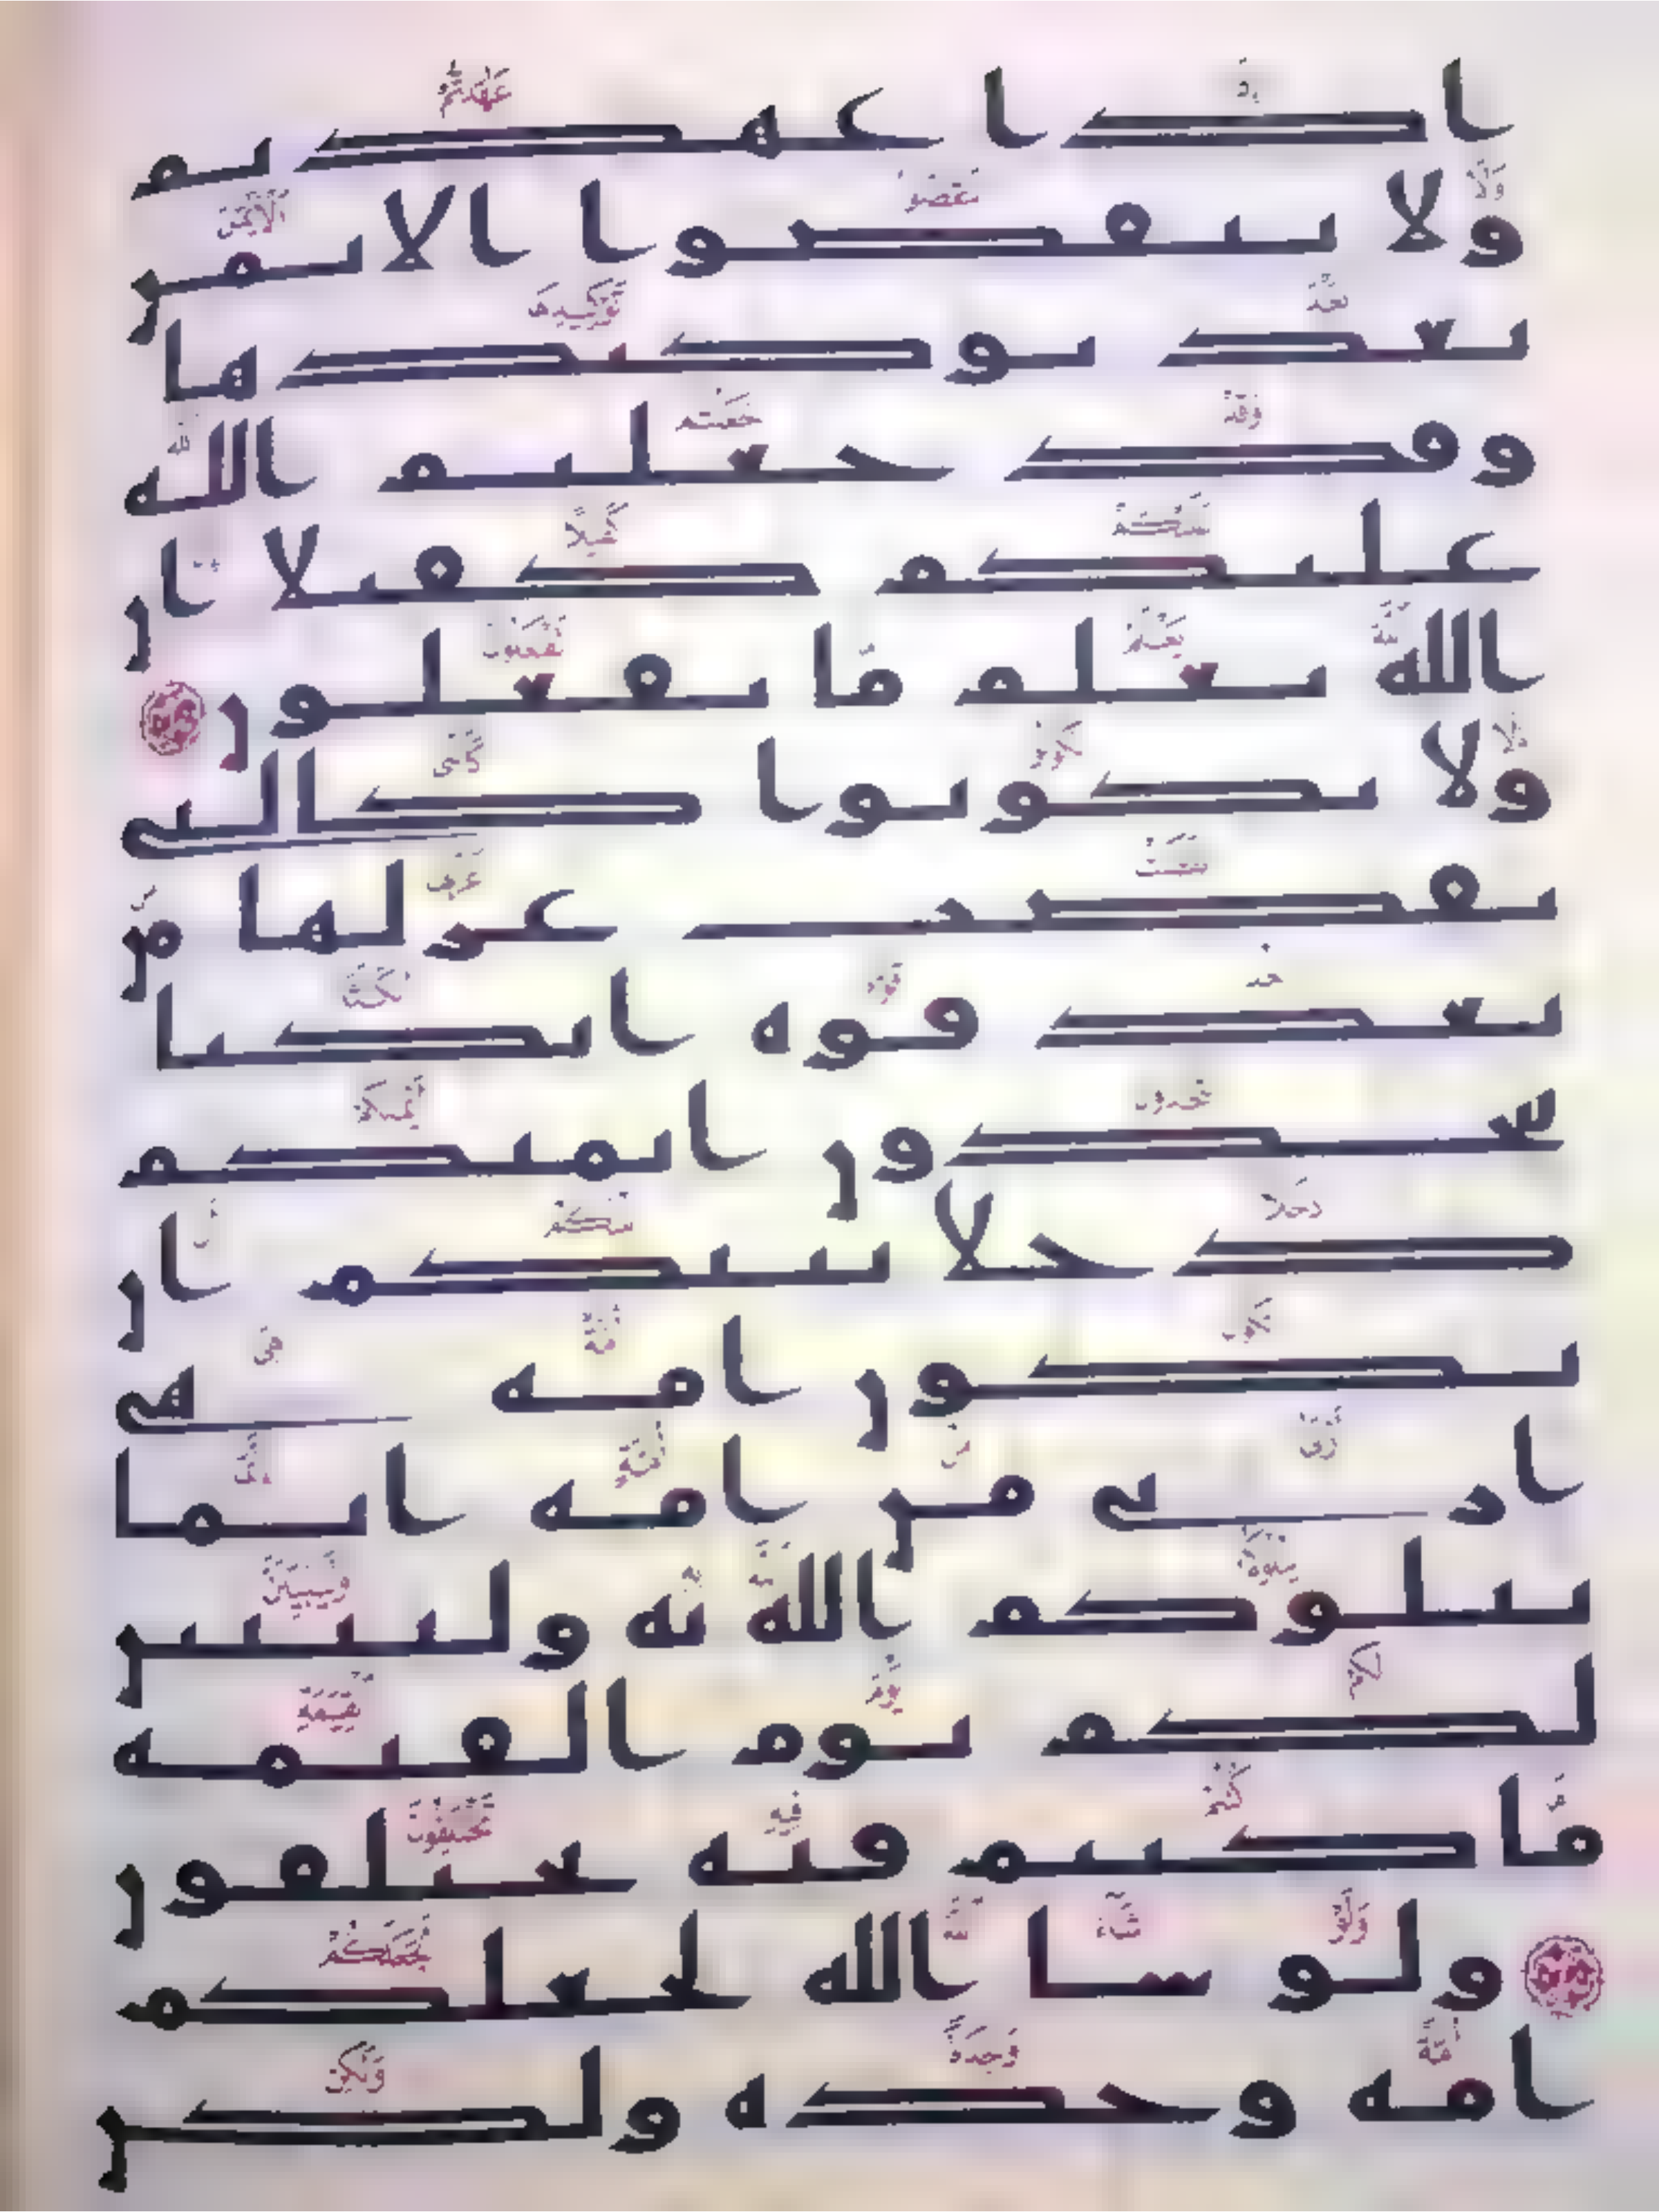 ادا عهدتم
ولا تنقضوا الايمن
بعد توكيدها
وقد جعلتم الله
عليكم كفيلا ان
الله يعلم ما تفعلون
ولا تكونوا كالتى
نقضت غزلها من
بعد قوه انكثا
تتخدون ايمنكم
دخلا بينكم ان
تكون امه هى
اربى من امه انما
يبلوكم الله به وليبينن
لكم يوم القيمه
ما كنتم فيه تختلفون
ولو شا الله لجعلكم
امه وحده ولكن